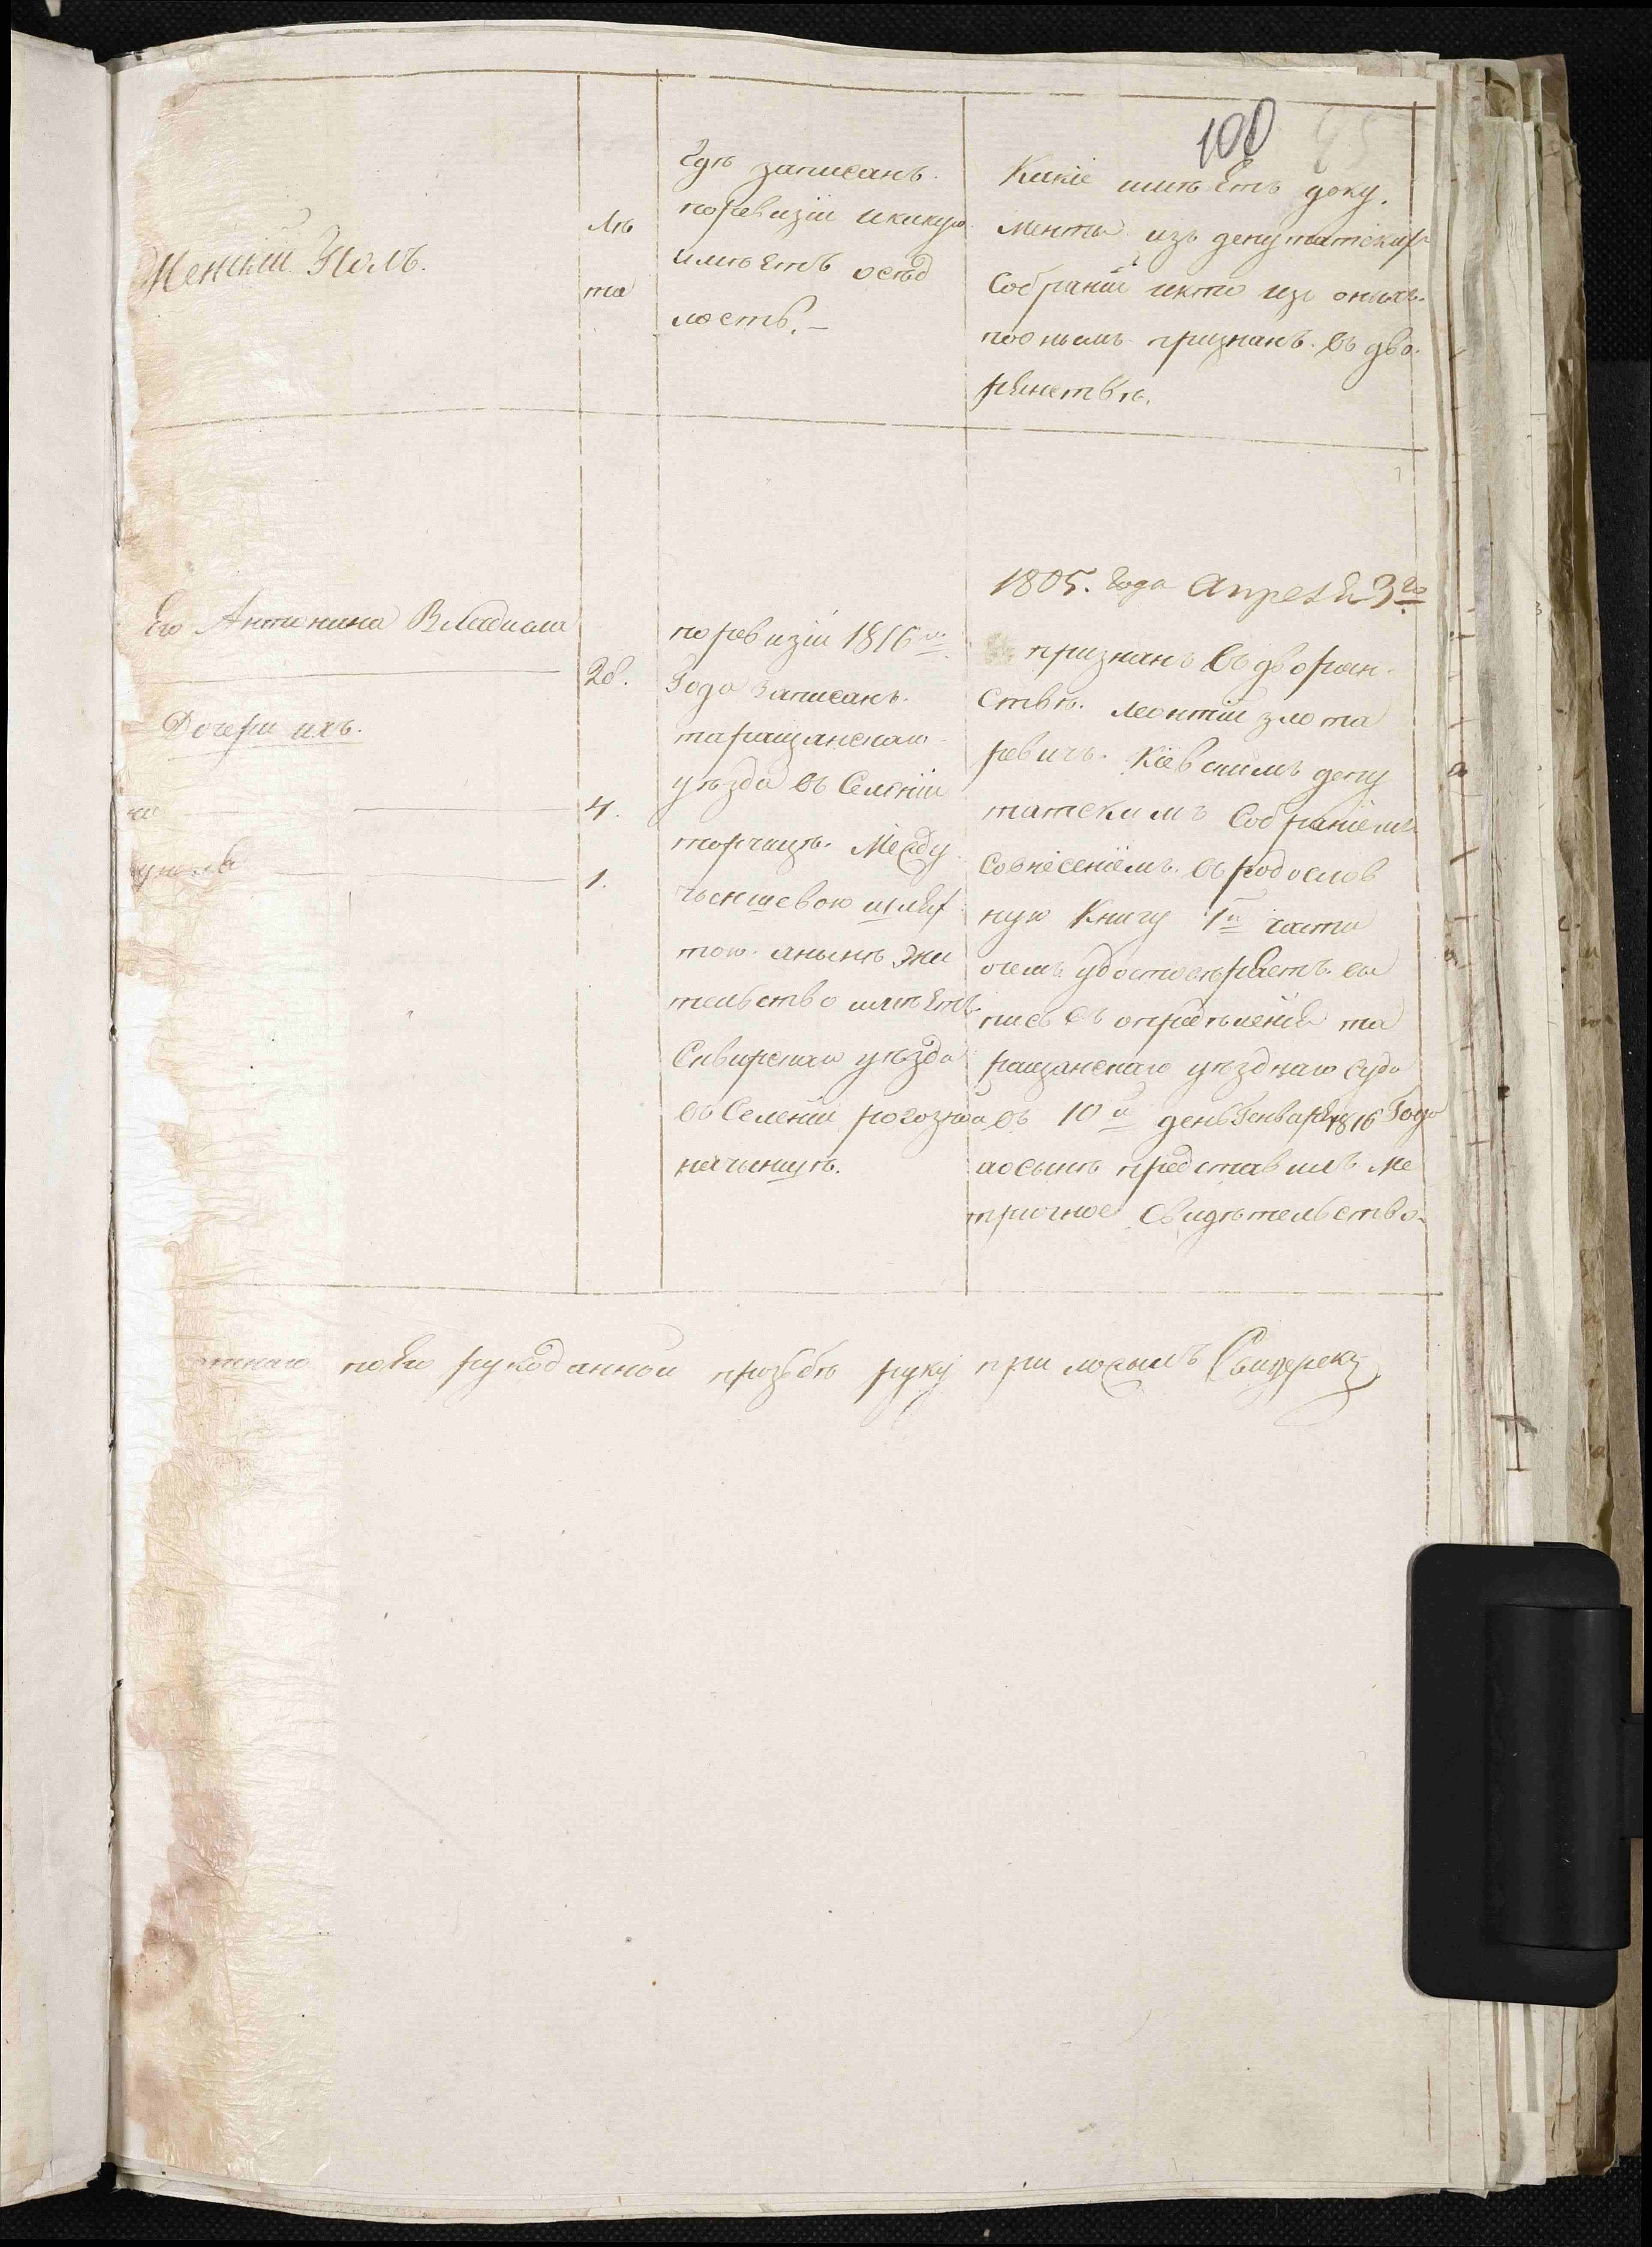 100
95
Женскій Полъ.
лѣ
та
Гдѣ записанъ
поревизіи икакую
имѣетъ осѣд
лость.
Какіе имѣетъ доку.
менты изъ депутатскихъ
Собраній икто изъ оныхъ
пооннымъ признанъ въ дво.
рянствѣ.
Его Антонина
28.
Дочери ихъ.
4.
1.
поревизіи 1816го
Года Записанъ
таращанскаго
уѣзда въ Селеніи
торчицѣ. Между
чыншевою шлях
тою. анынѣ жи
тельство имѣетъ
Сквирскаго уѣзда
въ Селеніи рогозной
начыншѣ.
1805. Года Апреля 3го
признанъ въ дворян.
ствѣ. леонтій злота
ревичъ. Кіевскимъ депу
татскимъ Собраніемъ
совнесеніемъ. въ родослов
ную Книгу 1й части
очемъ удостовѣряетъ вы
пись съ определенія та
ращанскаго уѣзднаго суда
въ 10й день Генваря 1816 Года
аосынѣ представилъ ме
тричное Свидѣтельство.
поего рукоданной прозьбѣ руку приложилъ